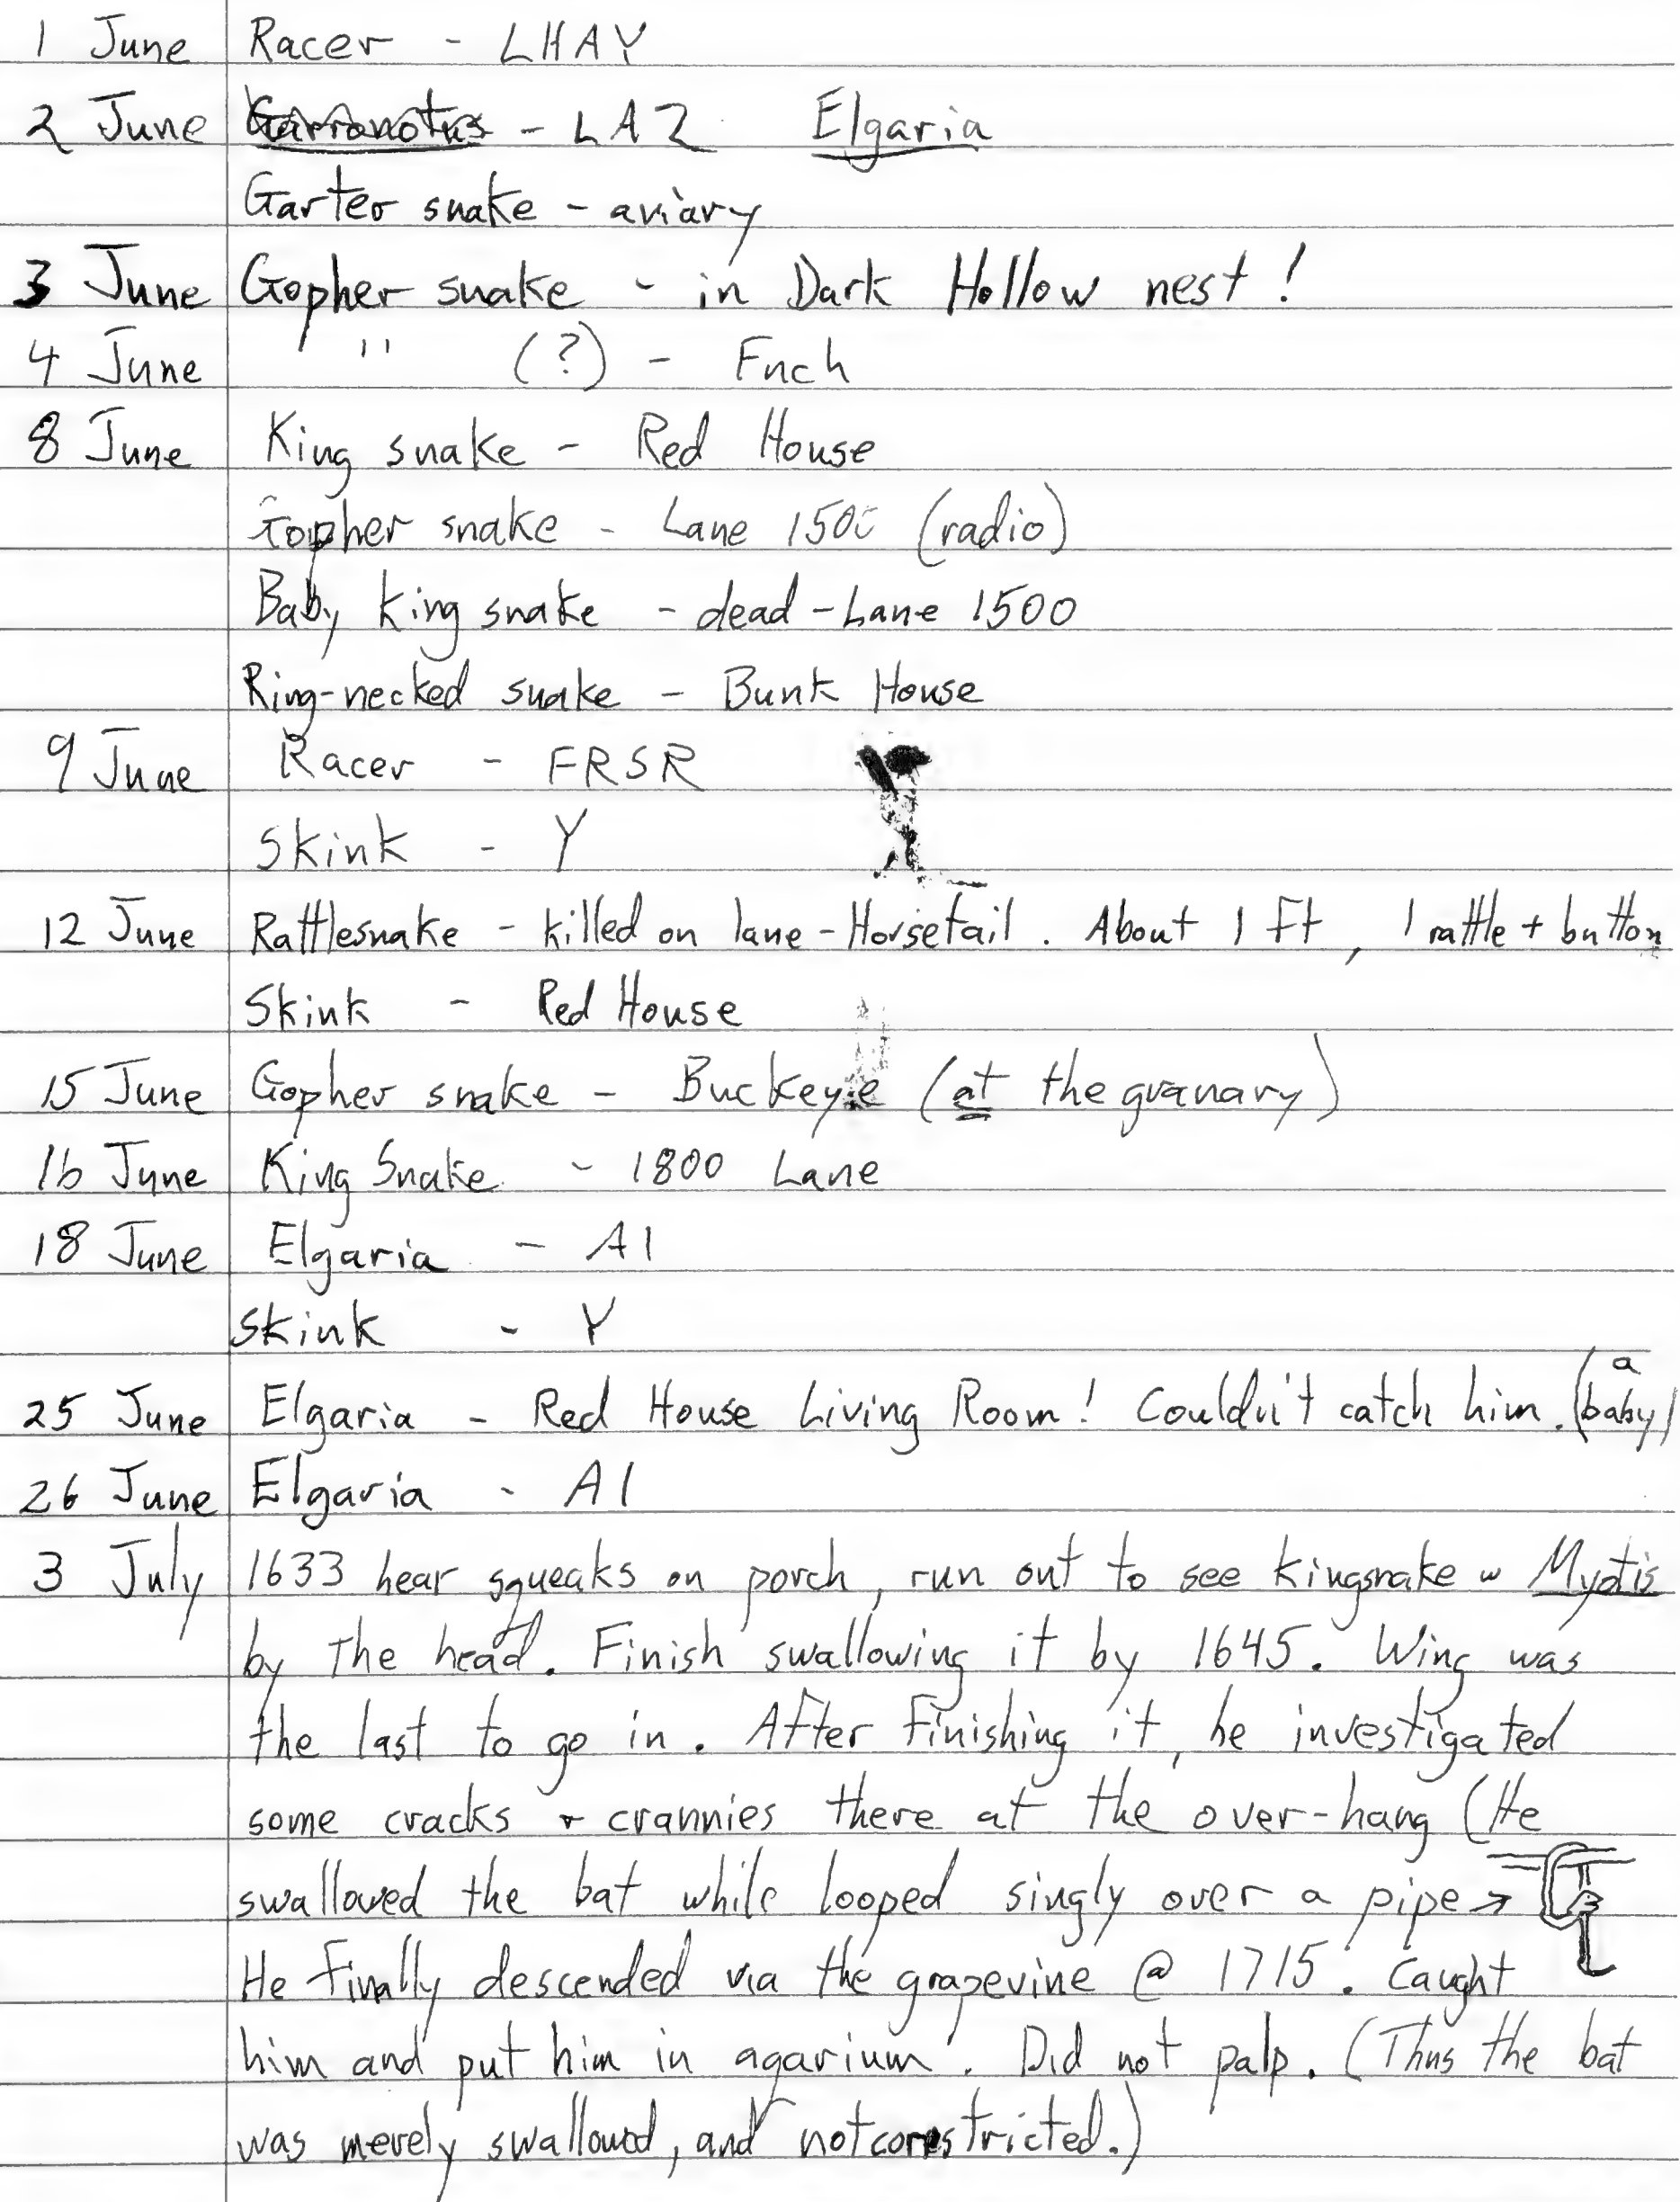 1 June Racer - LHAY
2 June Gerronotus - LAZ Elgaria
Garter snake - aviary
3 June Gopher snake - in Dark Hollow nest!
4 June " (?) - Fnch
8 June King snake - Red House
Gopher snake - Lane 1500 (radio)
Baby king snake - dead - Lane 1500
Ring-necked snake - Bunk House
9 June Racer - FRSR
Skink - Y
12 June Rattlesnake - killed on lane - Horsetail. About 1 ft, 1 rattle + button
Skink - Red House
15 June Gopher snake - Buckeye (at the granary)
16 June King Snake - 1800 Lane
18 June Elgaria - A1
Skink - Y
25 June Elgaria - Red House Living Room! Couldn't catch him. (a baby)
26 June Elgaria - A1
3 July 1633 hear squeaks on porch, run out to see kingsnake w Myotis
by the head. Finish swallowing it by 1645. Wing was
the last to go in. After finishing it, he investigated
some cracks + crannies there at the over-hang (He
swallowed the bat while looped singly over a pipe →
He finally descended via the grapevine @ 1715. Caught
him and put him in aqarium. Did not palp. (Thus the bat
was merely swallowed, and not constricted.)